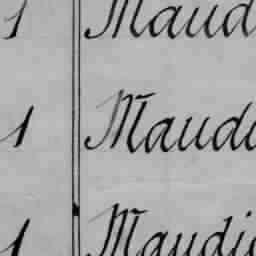 1 Maud
1 Maudi
1 Maudi